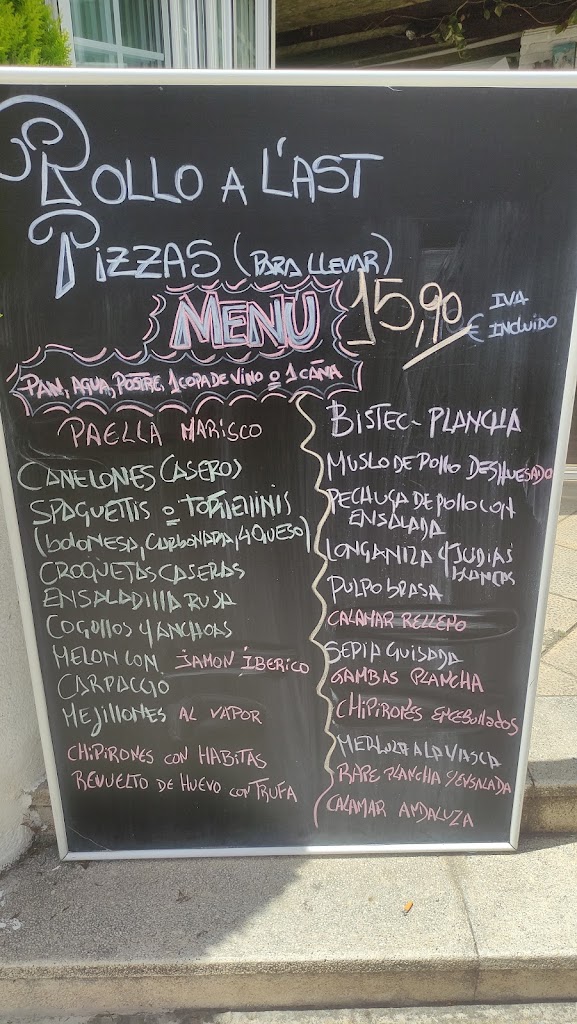 ROLLO A L'AST
PIZZAS (PARA LLEVAR)
MENU
15,90
€
IVA
INCLUIDO
PAN, AGUA, POSTRE, 1 COPA DE VINO O 1 CAÑA
PAELLA MARISCO
CANELONES CASEROS
SPAGUETTIS O TORTELLINIS
(BOLONESA, CARBONARA, 4 QUESO)
CROQUETAS CASERAS
ENSALADILLA RUSA
COGOLLOS Y ANCHOAS
MELON CON JAMON IBERICO
CARPACCIO
MEJILLONES AL VAPOR
CHIPIRONES CON HABITAS
REVUELTO DE HUEVO CON TRUFA
BISTEC - PLANCHA
MUSLO DE POLLO DESHUESADO
PECHUGA DE POLLO CON
ENSALADA
LONGANIZA Y JUDIAS
BLANCAS
PULPO BRASA
CALAMAR RELLENO
SEPIA GUISADA
GAMBAS PLANCHA
CHIPIRONES ENCEBOLLADOS
MERLUZA A LA VASCA
RAPE PLANCHA Y ENSALADA
CALAMAR ANDALUZA